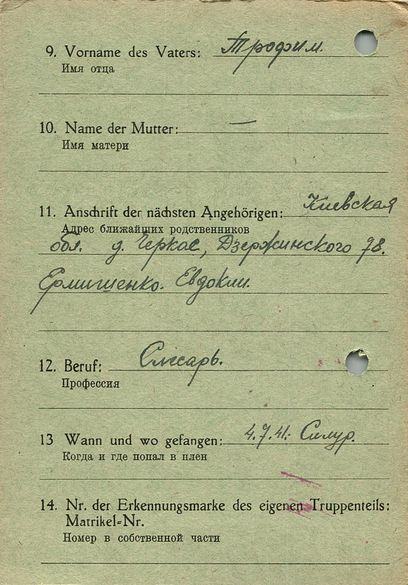 9. Vorname des Vaters: Трофим.
Имя отца
10. Name der Mutter: —
Имя матери
11. Anschrift der nächsten Angehörigen: Киевская
Адрес ближайших родственников
обл. д. Черкас, Дзержинского 78.
Ермишенко. Евдоким.
12. Beruf: Слесарь.
Профессия
13 Wann und wo gefangen: 4.7.41.
Когда и где попал в плен
14. Nr. der Erkennungsmarke des eigenen Truppenteils:
Matrikel-Nr.
Номер в собственной части